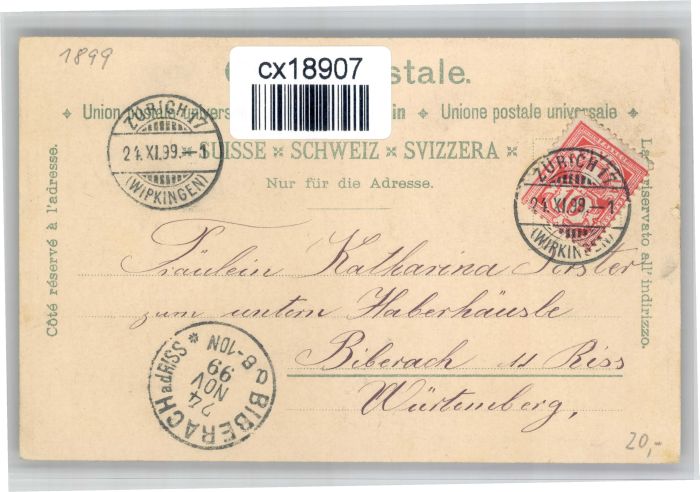 1899
cx18907
C stale.
Union postale univers in Unione postale universale
SUISSE SCHWEIZ SVIZZERA
Nur für die Adresse.
Côté réservé à l'adresse.
La riservato all' indirizzo.
ZÜRICH 17
24.XI.99.-1
(WIPKINGEN)
ZÜRICH 17
24.XI.99.-1
(WIPKINGEN)
10
Fräulein Katharina Forster
zum untern Haberhäusle
Biberach a/ Riss
Würtemberg,
BIBERACH a.d.RISS
24
NOV
99
8-10N
20,-